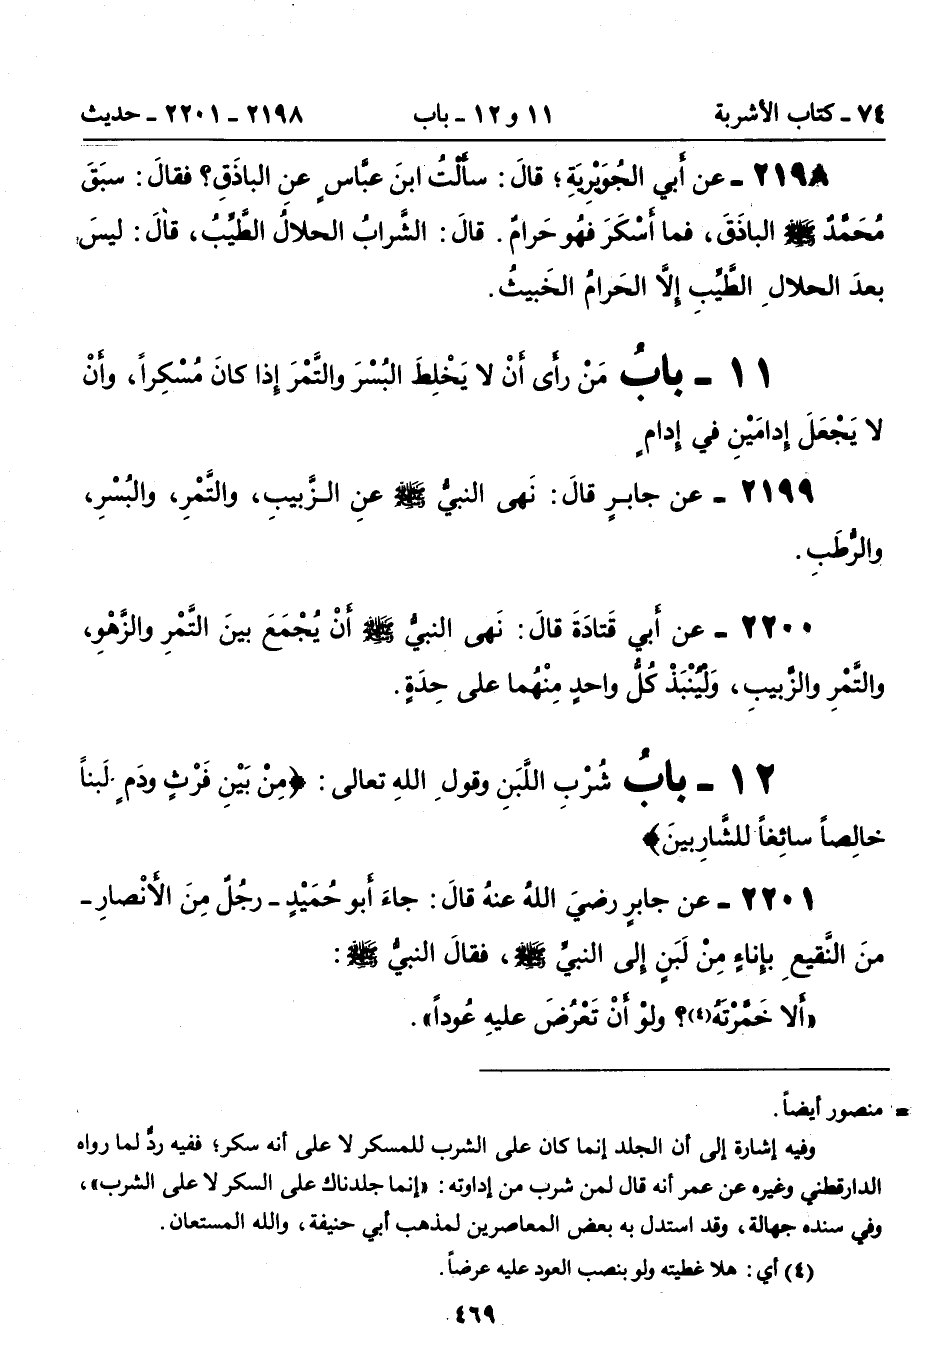 ٧٤ ـ كتاب الأشربة ١١ و ١٢ ـ باب ٢١٩٨ ـ ٢٢٠١ ـ حديث
٢١٩٨ ـ عن أَبي الجُوَيْرِيَةِ؛ قالَ: سأَلْتُ ابنَ عبَّاسٍ عنِ الباذَقِ؟ فقالَ: سبَقَ
مُحَمَّدٌ ﷺ الباذَقَ، فما أَسْكَرَ فهُو حَرامٌ. قالَ: الشَّرابُ الحلالُ الطَّيِّبُ، قالَ: ليسَ
بعدَ الحلالِ الطَّيِّبِ إِلَّا الحَرامُ الخَبيثُ.
١١ ـ بابُ مَنْ رأَى أَنْ لا يَخْلِطَ البُسْرَ والتَّمْرَ إِذا كانَ مُسْكِراً، وأَنْ
لا يَجْعَلَ إِدامَيْنِ في إِدامٍ
٢١٩٩ ـ عن جابرٍ قالَ: نَهى النبيُّ ﷺ عنِ الزَّبيبِ، والتَّمْرِ، والبُسْرِ،
والرُّطَبِ.
٢٢٠٠ ـ عن أَبي قَتادَةَ قالَ: نَهى النبيُّ ﷺ أَنْ يُجْمَعَ بينَ التَّمْرِ والزَّهْوِ،
والتَّمْرِ والزَّبيبِ، وَلْيُنْبَذْ كُلُّ واحدٍ مِنْهُما على حِدَةٍ.
١٢ ـ بابُ شُرْبِ اللَّبَنِ وقولِ اللهِ تعالى: ﴿مِنْ بَيْنِ فَرْثٍ ودَمٍ لَبناً
خالِصاً سائِغاً للشَّارِبينَ﴾
٢٢٠١ ـ عن جابرٍ رضيَ اللهُ عنهُ قالَ: جاءَ أَبو حُمَيْدٍ ـ رجُلٌ مِنَ الأَنْصارِ ـ
منَ النَّقيعِ بإِناءٍ مِنْ لَبَنٍ إِلى النبيِّ ﷺ، فقالَ النبيُّ ﷺ:
«أَلا خَمَّرْتَهُ(٤)؟ ولوْ أَنْ تَعْرُضَ عليهِ عُوداً».
= منصور أيضاً.
وفيه إشارة إلى أن الجلد إنما كان على الشرب للمسكر لا على أنه سكر؛ ففيه ردٌّ لما رواه
الدارقطني وغيره عن عمر أنه قال لمن شرب من إداوته: «إنما جلدناك على السكر لا على الشرب»،
وفي سنده جهالة، وقد استدل به بعض المعاصرين لمذهب أبي حنيفة، والله المستعان.
(٤) أي: هلا غطيته ولو بنصب العود عليه عرضاً.
٤٦٩